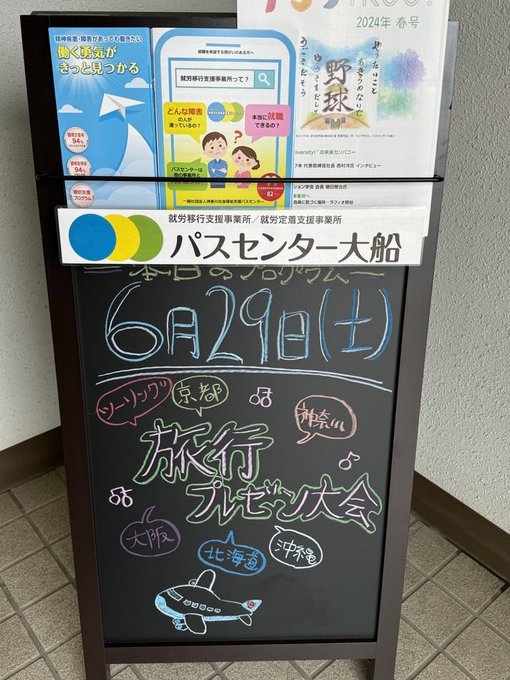 2024年 春号
やったこと
野球
精神疾患・障害があっても働きたい
働く勇気が
きっと見つかる
94%
94%
個別支援
プログラム
就職を希望する障がいのある方へ
就労移行支援事業所って？
どんな障害
の人が
通っているの？
本当に就職
できるの？
パスセンターは
82
一般社団法人神奈川社会福祉支援パスセンター
の未来カンパニー
代表取締役社長 西村洋氏 インタビュー
就労移行支援事業所／就労定着支援事業所
パスセンター大船
本日のプログラム
6月29日(土)
ツーリング
京都
神奈川
旅行
プレゼン大会
大阪
北海道
沖縄